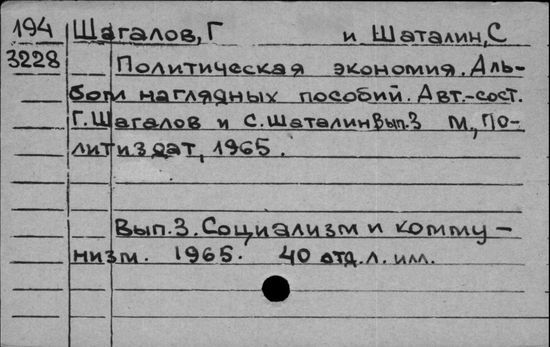 194 Шагалов, Г и Шаталин, С
3228 Политическая экономия. Аль-
бом наглядных пособий. Авт.-сост.
Г. Шагалов и С. Шаталин Вып. 3 М., По-
литиздат, 1965.
Вып. 3. Социализм и комму-
низм. 1965. 40 отд. л. илл.